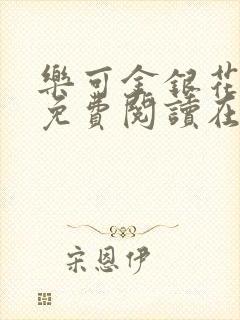 樂可金銀花
免費閱讀在
宋恩伊